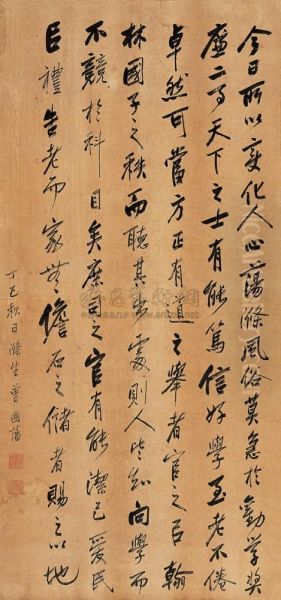 今日所以變化人心蕩滌風俗莫急於勸學獎
廉二事天下之士有能篤信好學至老不倦
卓然可當方正有道之舉者官之以翰
林國子之秩而聽其出處則人皆知向學而
不競於科目矣庶司之官有能潔己愛民
以禮告老而家無儋石之儲者賜之以地
丁巳秋日滌生曾國藩